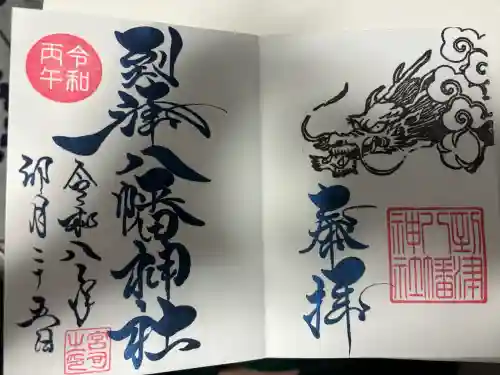 奉拝
到津
八幡
神社
到津八幡神社
令和八年
卯月二十五日
令和
丙午
宮司
之印